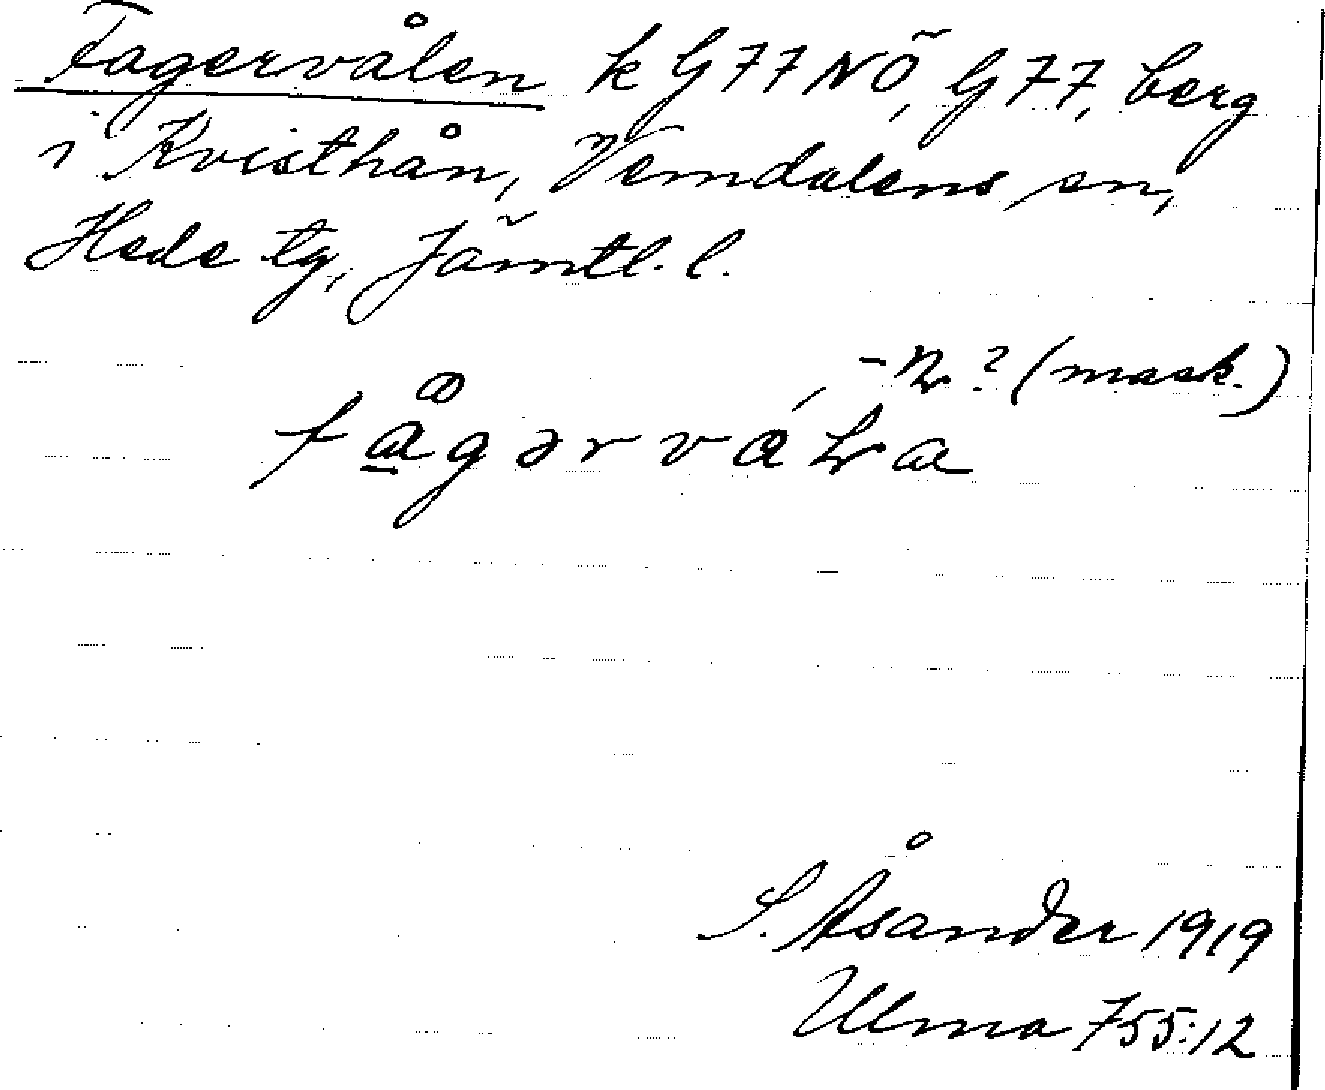 Fagervålen k G77NÖ, G77, berg
i Kvisthån, Vemdalens sn,
Hede tg, Jämtl. l.
? (mask.)
S. Åsander 1919
Ulma 755:12